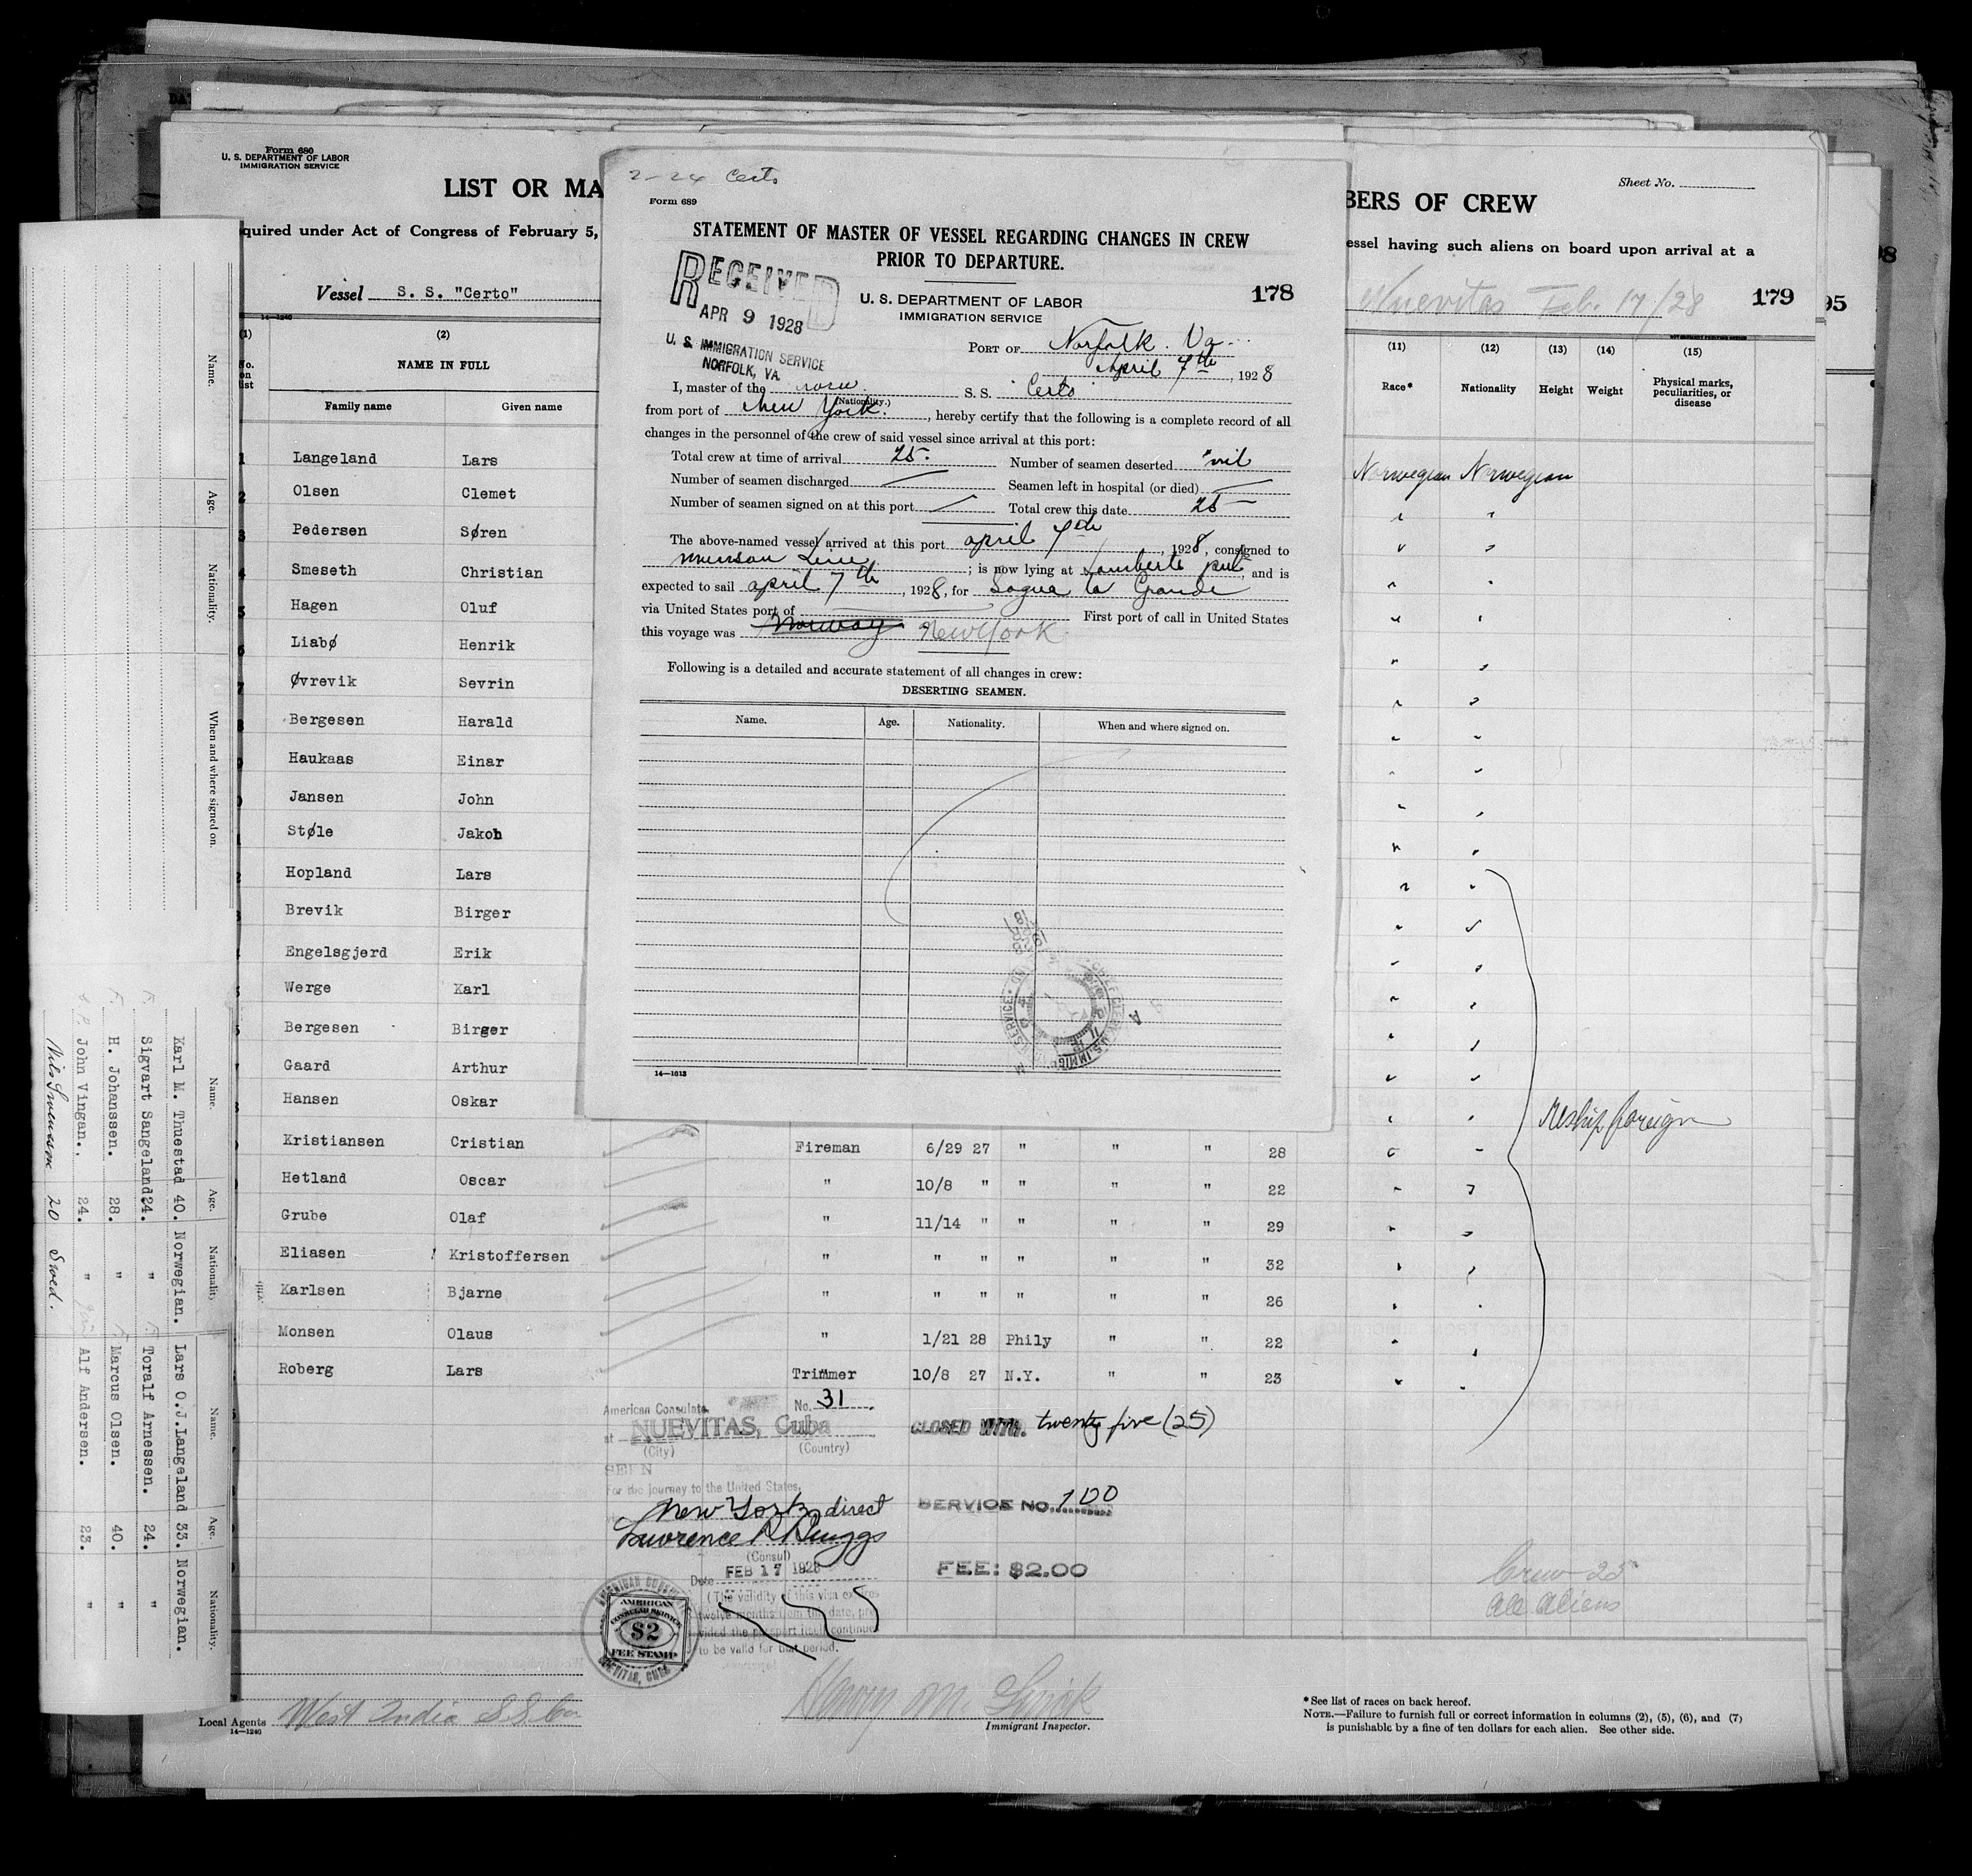 Form 680
U. S. DEPARTMENT OF LABOR
IMMIGRATION SERVICE
LIST OR MA
BERS OF CREW
Sheet No.
quired under Act of Congress of February 5,
essel having such aliens on board upon arrival at a
Vessel S. S. "Certo"
Nuevitas Feb. 17/28
179
95
14—1240
(1) (2) (11) (12) (13) (14) (15)
No. on list
NAME IN FULL
Family name Given name
Race* Nationality Height Weight Physical marks, peculiarities, or disease
2-24 Certo
Form 689
STATEMENT OF MASTER OF VESSEL REGARDING CHANGES IN CREW
PRIOR TO DEPARTURE.
RECEIVED
APR 9 1928
U. S. IMMIGRATION SERVICE
NORFOLK, VA.
U. S. DEPARTMENT OF LABOR
IMMIGRATION SERVICE
178
PORT OF Norfolk. Va
April 7th, 1928
I, master of the S. S. Certo
(Nationality.)
from port of New York., hereby certify that the following is a complete record of all
changes in the personnel of the crew of said vessel since arrival at this port:
Total crew at time of arrival 25. Number of seamen deserted nil
Number of seamen discharged Seamen left in hospital (or died)
Number of seamen signed on at this port Total crew this date 25
The above-named vessel arrived at this port april 7th, 1928, consigned to
Munson Line; is now lying at Lamberts, and is
expected to sail april 7th, 1928, for Sagua la Grande
via United States port of First port of call in United States
this voyage was Norway New York
Following is a detailed and accurate statement of all changes in crew:
DESERTING SEAMEN.
Name. Age. Nationality. When and where signed on.
14—1613
1 Langeland Lars Norwegian Norwegian
2 Olsen Clemet
3 Pedersen Søren
4 Smeseth Christian
5 Hagen Oluf
6 Liabø Henrik
7 Øvrevik Sevrin
8 Bergesen Harald
Haukaas Einar
Jansen John
Støle Jakob
Hopland Lars
Brevik Birger
Engelsgjerd Erik
Werge Karl
Bergesen Birger
Gaard Arthur
Hansen Oskar
Reship foreign
Kristiansen Cristian Fireman 6/29 27 " " " 28
Hetland Oscar " 10/8 " " " " 22
Grube Olaf " 11/14 " " " " 29
Eliasen Kristoffersen " " " " " " 32
Karlsen Bjarne " " " " " " 26
Monsen Olaus " 1/21 28 Phily " " 22
Roberg Lars Trimmer 10/8 27 N.Y. " " 23
American Consulate No. 31
at NUEVITAS, Cuba
(City) (Country)
CLOSED WITH. twenty five (25)
SEEN
For the journey to the United States,
New York direct
SERVICE NO. 100
Lawrence R Briggs
(Consul)
Date FEB 17 1928
FEE: $2.00
(The validity of this visa expires
twelve months from the date, pro
vided the passport itself continues
to be valid for that period.
AMERICAN
CONSULAR SERVICE
$2
FEE STAMP
NUEVITAS, CUBA
Crew 25
All Aliens
Local Agents West India S S Co
14—1240
Immigrant Inspector.
*See list of races on back hereof.
NOTE.—Failure to furnish full or correct information in columns (2), (5), (6), and (7)
is punishable by a fine of ten dollars for each alien. See other side.
Name. Age. Nationality. When and where signed on.
Name. Age. Nationality Name. Age. Nationality.
Karl M. Thuestad 40. Norwegian. Lars O.J.Langeland 33. Norwegian.
Sigvart Sangeland 24. " Toralf Arnessen. 24. "
H. Johanssen. 28. " Marcus Olsen. 40. "
John Vingan. 24. " Alf Andersen. 23. "
Nils Swensson 20 Swed.